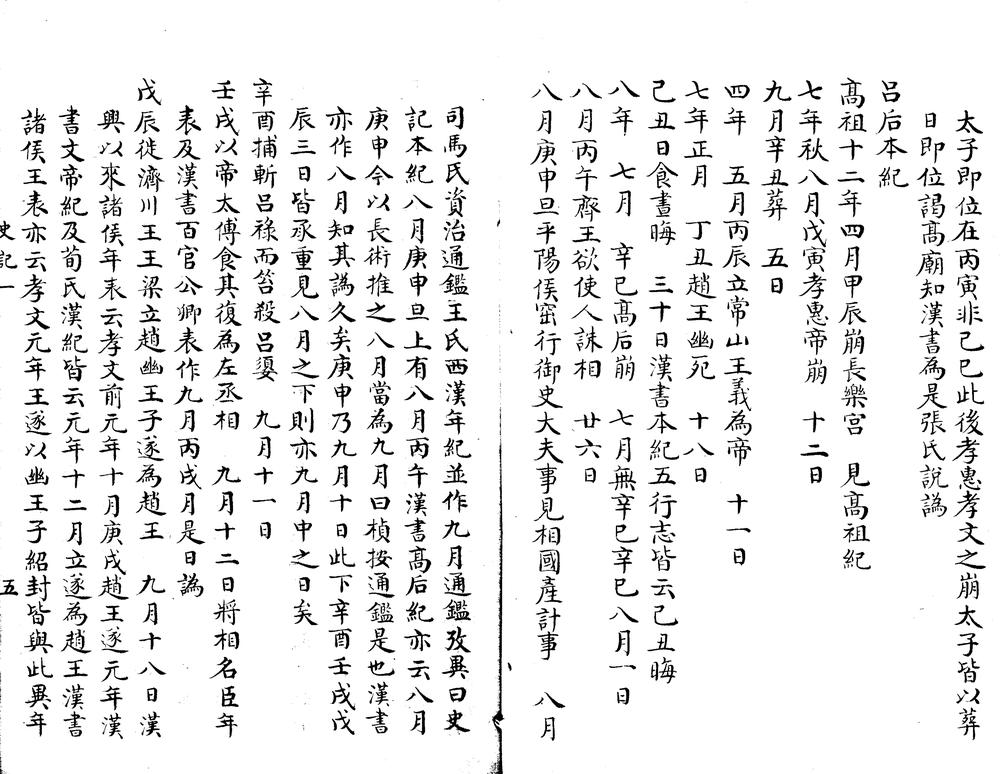 太子即位在丙寅非己巳此後孝惠孝文之崩太子皆以葬
日即位謁高廟知漢書為是張氏說譌
呂后本紀
高祖十二年四月甲辰崩長樂宫　見高祖紀
七年秋八月戊寅孝惠帝崩　十二日
九月辛丑葬　五日
四年　五月丙辰立常山王義為帝　十一日
七年正月　丁丑趙王幽死　十八日
己丑日食晝晦　三十日漢書本紀五行志皆云己丑晦
八年　七月　辛巳高后崩　七月無辛巳辛巳八月一日
八月丙午齊王欲使人誅相　廿六日
八月庚申旦平陽侯窋行御史大夫事見相國產計事　八月
司馬氏資治通鑑王氏西漢年紀並作九月通鑑攷異曰史
記本紀八月庚申旦上有八月丙午漢書高后紀亦云八月
庚申今以長術推之八月當為九月曰楨按通鑑是也漢書
亦作八月知其譌久矣庚申乃九月十日此下辛酉壬戌戊
辰三日皆承重見八月之下則亦九月中之日矣
辛酉捕斬呂祿而笞殺呂嬃　九月十一日
壬戌以帝太傅食其復為左丞相　九月十二日將相名臣年
表及漢書百官公卿表作九月丙戌月是日譌
戊辰徙濟川王王梁立趙幽王子遂為趙王　九月十八日漢
興以來諸侯年表云孝文前元年十月庚戌趙王遂元年漢
書文帝紀及荀氏漢紀皆云元年十二月立遂為趙王漢書
諸侯王表亦云孝文元年王遂以幽王子紹封皆與此異年
史記一　五